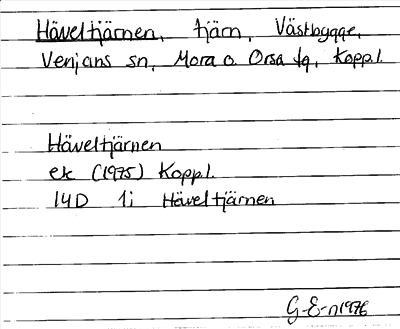 Häveltjärnen, tjärn, Västbygge,
Venjans sn, Mora o. Orsa tg, Kopp.l.
Häveltjärnen
ek (1975) Kopp.l.
14D 1i Häveltjärnen
G-E-n 1976